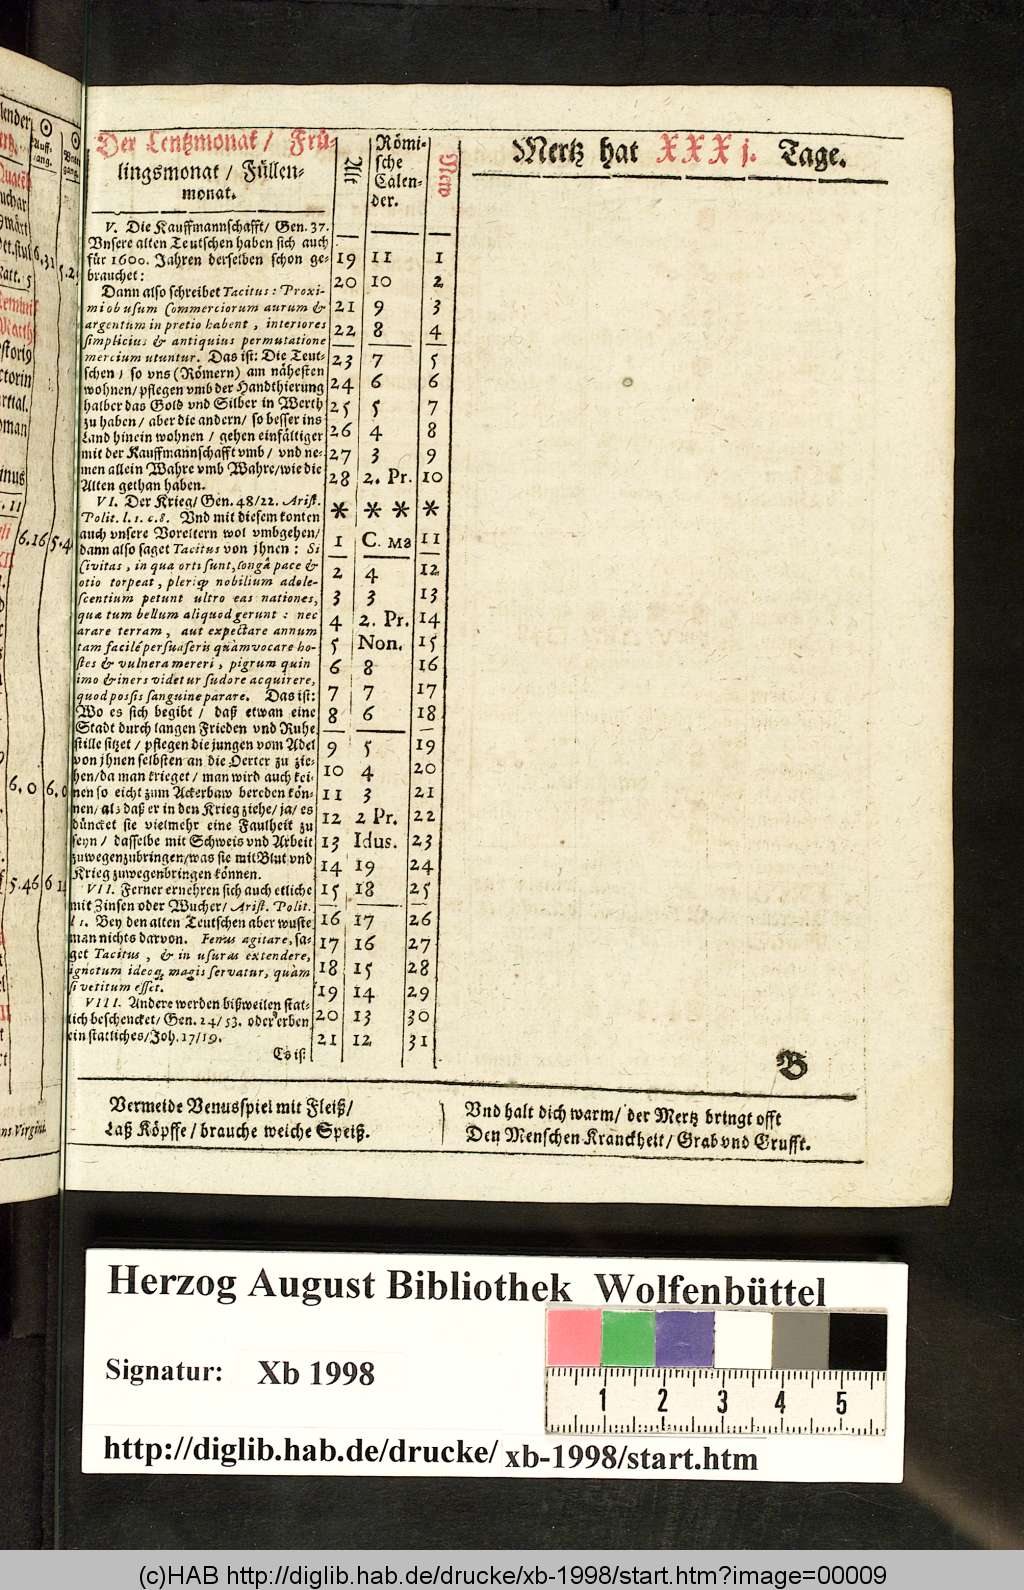 Der Lentzmonat / Frü-
lingsmonat / Füllen-
monat.
V. Die Kauffmannschafft / Gen. 37.
Vnsere alten Teutschen haben sich auch
für 1600. Jahren derselben schon ge-
brauchet:
Dann also schreibet Tacitus: Proxi-
mi ob usum Commerciorum aurum &
argentum in pretio habent, interiores
simplicius & antiquius permutatione
mercium utuntur. Das ist: Die Teut-
schen / so vns (Römern) am nähesten
wohnen / pflegen vmb der Handthierung
halber das Gold vnd Silber in Werth
zu haben / aber die andern / so besser ins
Land hinein wohnen / gehen einfältiger
mit der Kauffmannschafft vmb / vnd ne-
men allein Wahre vmb Wahre / wie die
Alten gethan haben.
VI. Der Krieg / Gen. 48/22. Arist.
Polit. l. 1. c. 8. Vnd mit diesem konten
auch vnsere Voreltern wol vmbgehen /
dann also saget Tacitus von jhnen: Si
Civitas, in qua orti sunt, longâ pace &
otio torpeat, pleriq; nobilium adole-
scentium petunt ultro eas nationes,
quæ tum bellum aliquod gerunt: nec
arare terram, aut expectare annum
tam facilè persuaseris quàm vocare ho-
stes & vulnera mereri, pigrum quin
imo & iners videtur sudore acquirere,
quod possis sanguine parare. Das ist:
Wo es sich begibt / daß etwan eine
Stadt durch langen Frieden vnd Ruhe
stille sitzet / pflegen die jungen vom Adel
von jhnen selbsten an die Oerter zu zie-
hen / da man krieget / man wird auch kei-
nen so eicht zum Ackerbaw bereden kön-
nen / als daß er in den Krieg ziehe / ja / es
düncket sie vielmehr eine Faulheit zu
seyn / dasselbe mit Schweis vnd Arbeit
zuwegenzubringen / was sie mit Blut vnd
Krieg zuwegenbringen können.
VII. Ferner ernehren sich auch etliche
mit Zinsen oder Wucher / Arist. Polit.
l 1. Bey den alten Teutschen aber wuste
man nichts darvon. Fenus agitare, sa-
get Tacitus, & in usuras extendere,
ignotum ideoq; magis servatur, quàm
si vetitum esset.
VIII. Andere werden bißweilen stat-
lich beschencket / Gen. 24/53. oder erben
ein statliches / Joh. 17/19.
Es ist
Alt Römi-
sche
Calen-
der. New
19 11 1
20 10 2
21 9 3
22 8 4
23 7 5
24 6 6
25 5 7
26 4 8
27 3 9
28 2. Pr. 10
* * * *
1 C. Ma 11
2 4 12
3 3 13
4 2. Pr. 14
5 Non. 15
6 8 16
7 7 17
8 6 18
9 5 19
10 4 20
11 3 21
12 2 Pr. 22
13 Idus. 23
14 19 24
15 18 25
16 17 26
17 16 27
18 15 28
19 14 29
20 13 30
21 12 31
Mertz hat XXXj. Tage.
B
Vermeide Venusspiel mit Fleiß /
Laß Köpffe / brauche weiche Speiß.
Vnd halt dich warm / der Mertz bringt offt
Den Menschen Kranckheit / Grab vnd Grufft.
Herzog August Bibliothek Wolfenbüttel
Signatur: Xb 1998
1 2 3 4 5
http://diglib.hab.de/drucke/ xb-1998/start.htm
(c)HAB http://diglib.hab.de/drucke/xb-1998/start.htm?image=00009